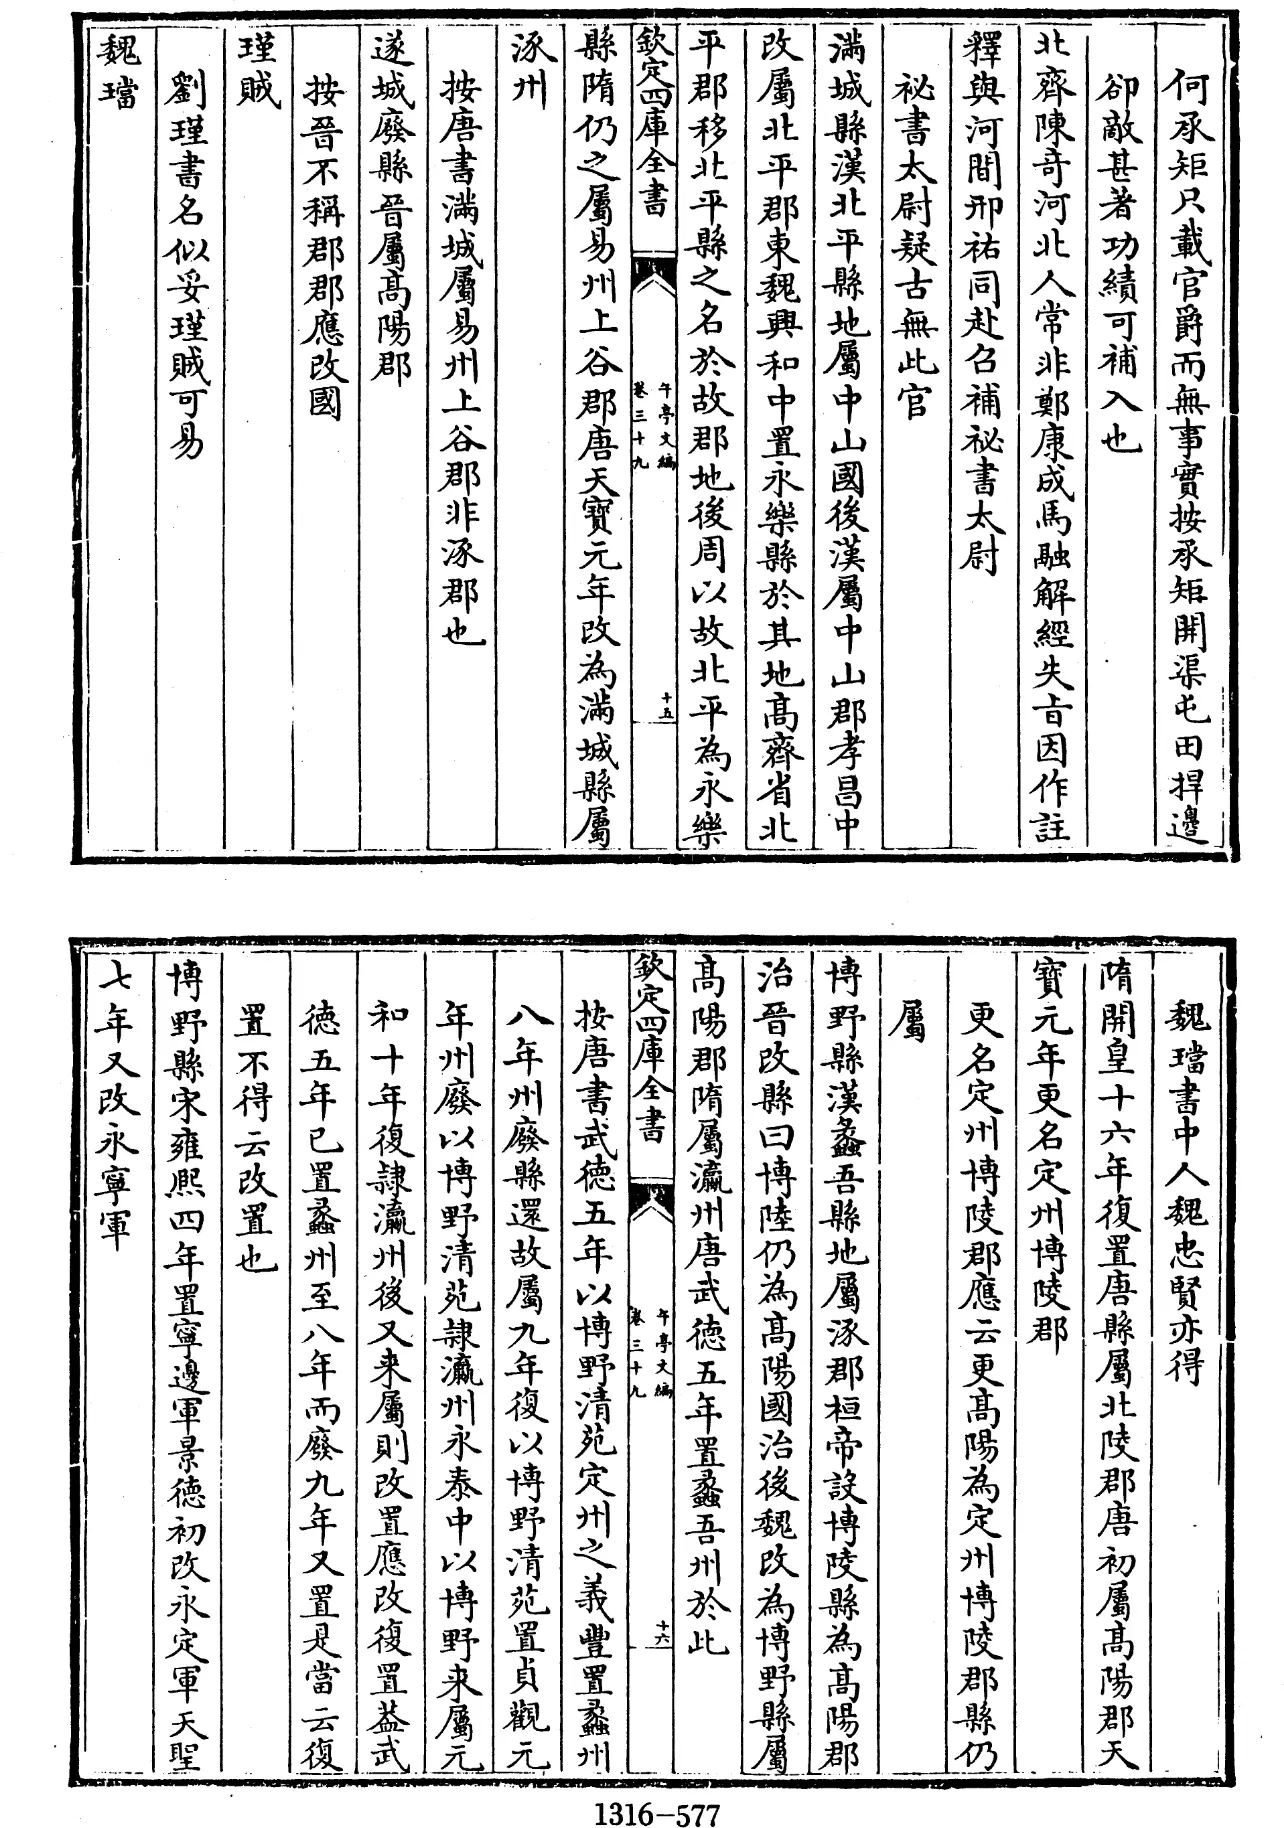 何承矩只載官爵而無事實按承矩開渠屯田捍邊
卻敵甚著功績可補入也
北齊陳奇河北人常非鄭康成馬融解經失旨因作註
釋與河間邢祐同赴召補祕書太尉
祕書太尉疑古無此官
滿城縣漢北平縣地屬中山國後漢屬中山郡孝昌中
改屬北平郡東魏興和中置永樂縣於其地高齊省北
平郡移北平縣之名於故郡地後周以故北平為永樂
欽定四庫全書
午亭文編
卷三十九
十五
縣隋仍之屬易州上谷郡唐天寶元年改為滿城縣屬
涿州
按唐書滿城屬易州上谷郡非涿郡也
遂城廢縣晉屬高陽郡
按晉不稱郡郡應改國
瑾賊
劉瑾書名似妥瑾賊可易
魏璫
魏璫書中人魏忠賢亦得
隋開皇十六年復置唐縣屬北陵郡唐初屬高陽郡天
寶元年更名定州博陵郡
更名定州博陵郡應云更高陽為定州博陵郡縣仍
屬
博野縣漢蠡吾縣地屬涿郡桓帝設博陵縣為高陽郡
治晉改縣曰博陸仍為高陽國治後魏改為博野縣屬
高陽郡隋屬瀛州唐武德五年置蠡吾州於此
欽定四庫全書
午亭文編
卷三十九
十六
按唐書武德五年以博野清苑定州之義豐置蠡州
八年州廢縣還故屬九年復以博野清苑置貞觀元
年州廢以博野清苑隷瀛州永泰中以博野來屬元
和十年復隷瀛州後又來屬則改置應改復置葢武
德五年已置蠡州至八年而廢九年又置是當云復
置不得云改置也
博野縣宋雍熙四年置寧邊軍景德初改永定軍天聖
七年又改永寧軍
1316-577